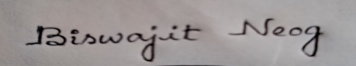 Biswajit Neog